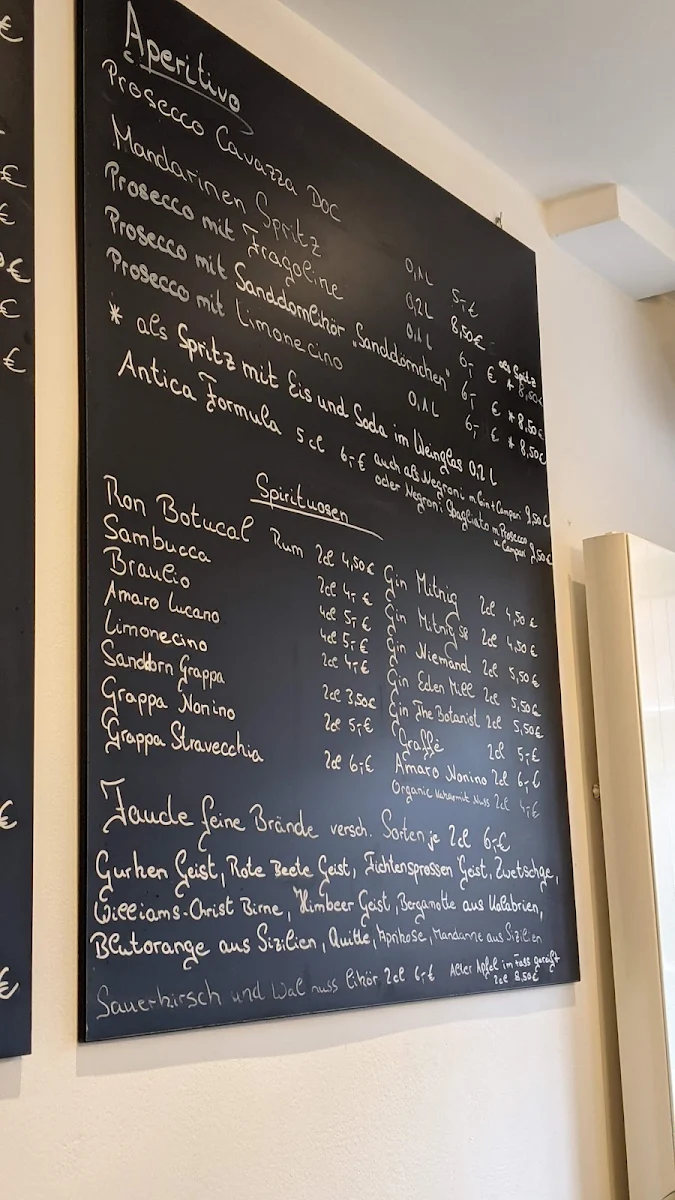 Aperitivo
Prosecco Cavazza DOC 0,1L 5,-€
Mandarinen Spritz 0,2L 8,50€
Prosecco mit Fragoline 0,1L 6,- € als Spritz * 8,50€
Prosecco mit Sanddornlikör „Sanddörnchen" 6,- € * 8,50€
Prosecco mit Limonecino 0,1L 6,- € * 8,50€
* als Spritz mit Eis und Soda im Weinglas 0,2 L
Antica Formula 5cl 6,-€ auch als Negroni m Gin + Campari 9,50€
oder Negroni Sbagliato m Prosecco u Campari 9,50€
Spirituosen
Ron Botucal Rum 2cl 4,50€
Sambucca 2cl 4,-€
Braulio 4cl 5,-€
Amaro Lucano 4cl 5,-€
Limonecino 2cl 4,-€
Sanddorn Grappa 2cl 3,50€
Grappa Nonino 2cl 5,-€
Grappa Stravecchia 2cl 6,-€
Gin Mitnig 2cl 4,50€
Gin Mitnig se 2cl 4,50€
Gin Niemand 2cl 5,50€
Gin Eden Mill 2cl 5,50€
Gin The Botanist 2cl 5,50€
Graffè 2cl 5,-€
Amaro Nonino 2cl 6,-€
Organic mit Nuss 2cl 4,-€
Faude feine Brände versch. Sorten je 2cl 6,-€
Gurken Geist, Rote Beete Geist, Fichtensprossen Geist, Zwetschge,
Williams-Christ Birne, Himbeer Geist, Bergamotte aus Kalabrien,
Blutorange aus Sizilien, Quitte, Aprikose, Mandarine aus Sizilien
Sauerkirsch und Walnuss likör 2cl 6,-€ Alter Apfel im Fass gereift
2cl 8.50€
€
€
€
€
€
€
€
€